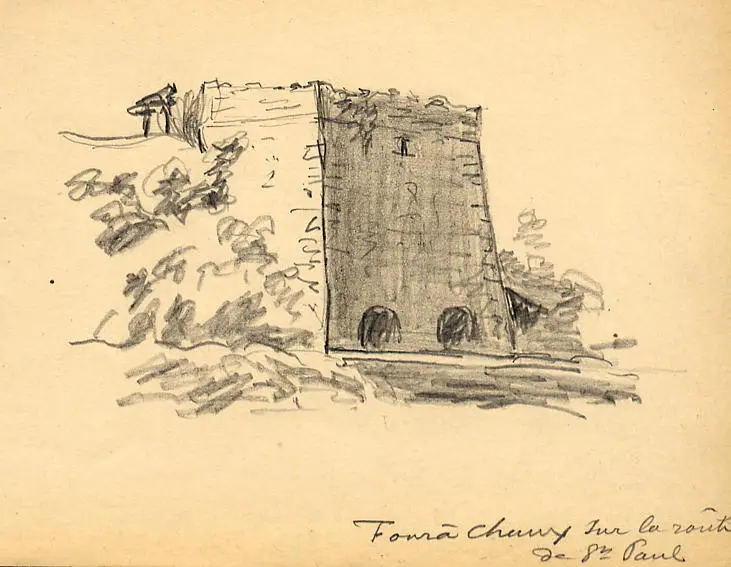 Four à Chaux sur la route
de St Paul